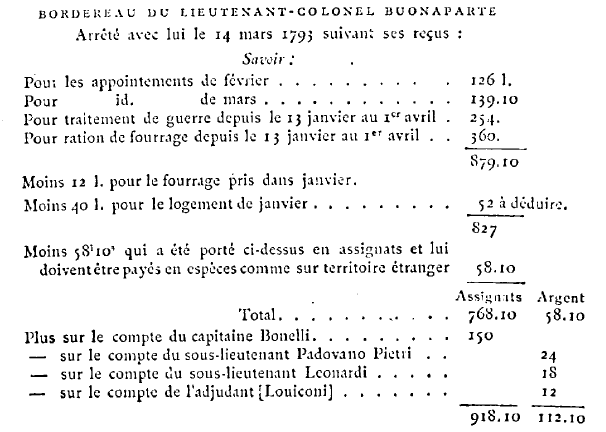 BORDEREAU DU LIEUTENANT-COLONEL BUONAPARTE
Arrêté avec lui le 14 mars 1793 suivant ses reçus :
Savoir :
Pour les appointements de février . . . . . . . . . . 126 l.
Pour id. de mars . . . . . . . . . . . . 139.10
Pour traitement de guerre depuis le 13 janvier au 1er avril . 254.
Pour ration de fourrage depuis le 13 janvier au 1er avril . . 360.
879.10
Moins 12 l. pour le fourrage pris dans janvier.
Moins 40 l. pour le logement de janvier . . . . . . . . . 52 à déduire.
827
Moins 58l10s qui a été porté ci-dessus en assignats et lui
doivent être payés en espèces comme sur territoire étranger 58.10
Assignats Argent
Total. . . . . . . . . . . 768.10 58.10
Plus sur le compte du capitaine Bonelli. . . . . . . . . 150
— sur le compte du sous-lieutenant Padovano Pietri . . 24
— sur le compte du sous-lieutenant Leonardi . . . . . 18
— sur le compte de l'adjudant [Louiconi] . . . . . . . 12
918.10 112.10